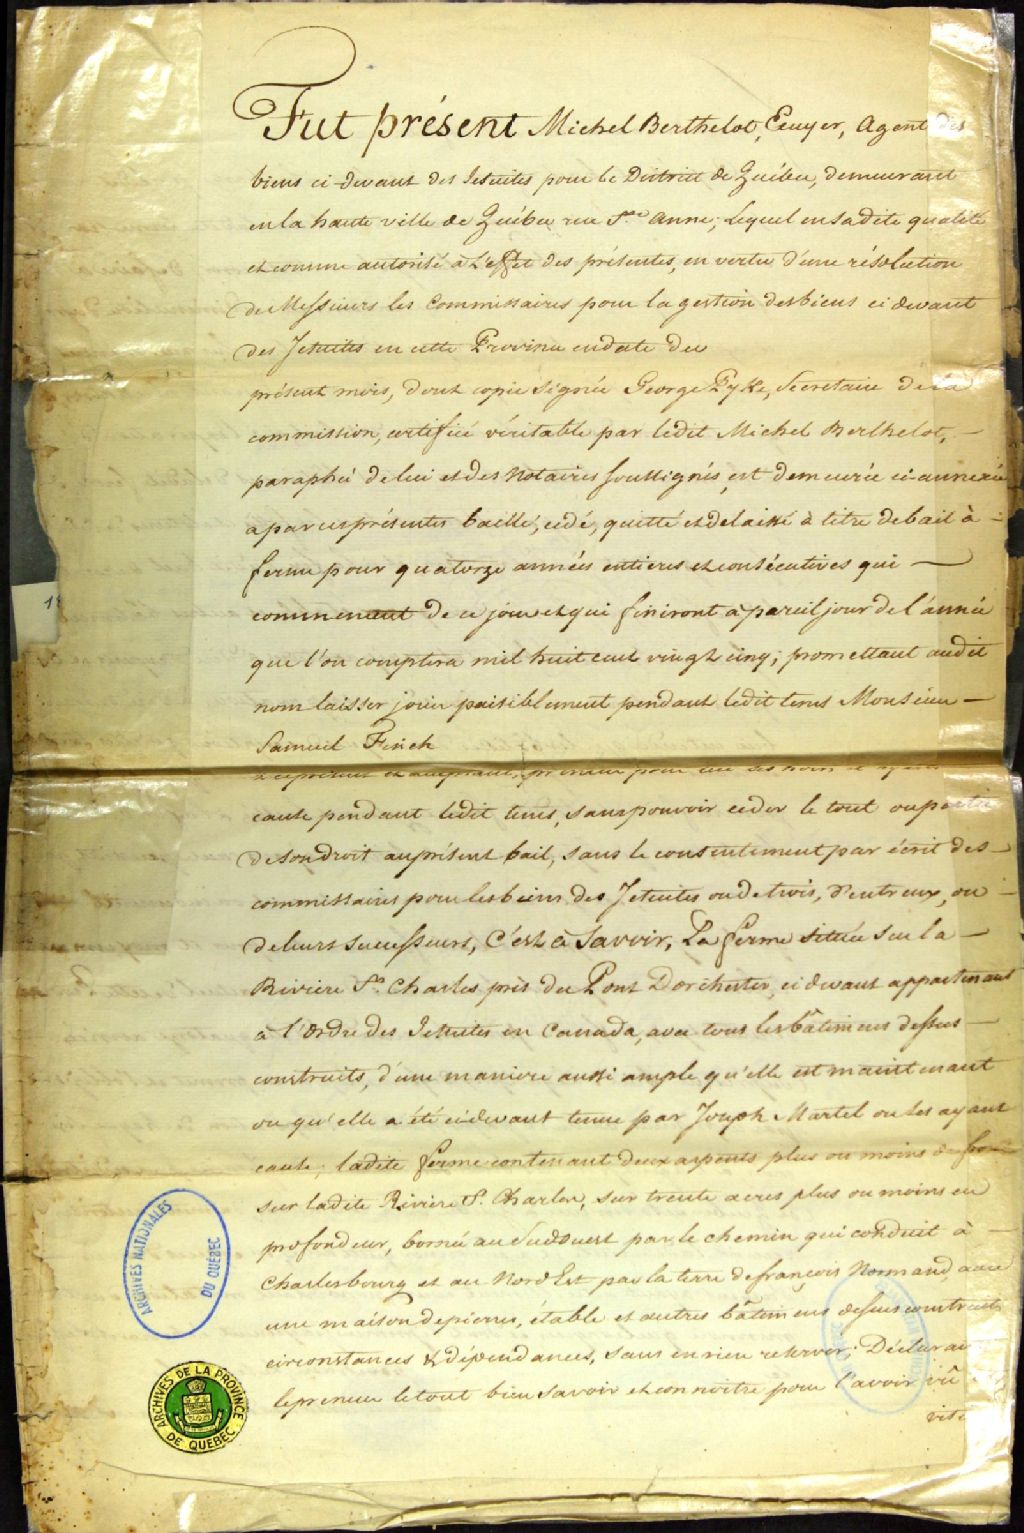 Fut présent Michel Berthelot, Ecuyer, Agent des
biens ci devant des Jesuites pour le District de Québec, demeurant
en la haute ville de Québec rue Ste Anne; lequel en sadite qualité
et comme autorisé à l'effet des présentes, en vertu d'une résolution
de Messieurs les Commissaires pour la gestion des biens ci devant
des Jesuites en cette Province en date du
présent mois, dont copie signée George Pyke, Secretaire de la
commission, certifiée véritable par ledit Michel Berthelot, —
paraphée de lui et des Notaires soussignés, est demeurée ci-annexée
a par ces présentes baillé, cédé, quitté et delaissé à titre de bail à —
ferme pour quatorze années entieres et consécutives qui —
commencent de ce jour et qui finiront à pareil jour de l'année
que l'on comptera mil huit cent vingt cinq; promettant audit
nom laisser jouir paisiblement pendant ledit tems Monsieur —
Samuel Finch
à ce présent et acceptant, preneur pour lui ses hoirs et ayans
cause pendant ledit tems, sans pouvoir ceder le tout ou partie
de son droit au présent bail, sans le consentement par écrit des —
commissaires pour les biens des Jesuites ou de trois, d'entr'eux, ou —
de leurs successeurs, C'est à Savoir, La ferme située sur la —
Riviere St. Charles près du Pont Dorchester, ci devant appartenant
à l'Ordre des Jesuites en Canada, avec tous les bâtimens dessus —
construits, d'une maniere aussi ample qu'elle est maintenant
ou qu'elle a été ci-devant tenue par Joseph Martel ou les ayant
cause; ladite ferme contenant deux arpents plus ou moins de front
sur ladite Riviere St. Charles, sur trente acres plus ou moins en
profondeur, bornée au Sudouest par le chemin qui conduit à —
Charlesbourg et au Nord Est par la terre de françois Normand, avec
une maison de pierres, étable et autres bâtimens dessus construits
circonstances & dépendances, sans en rien reserver; Déclarant
le preneur le tout bien savoir et connoitre pour l'avoir vû
visité
ARCHIVES NATIONALES
DU QUÉBEC
ARCHIVES DE LA PROVINCE
DE QUEBEC